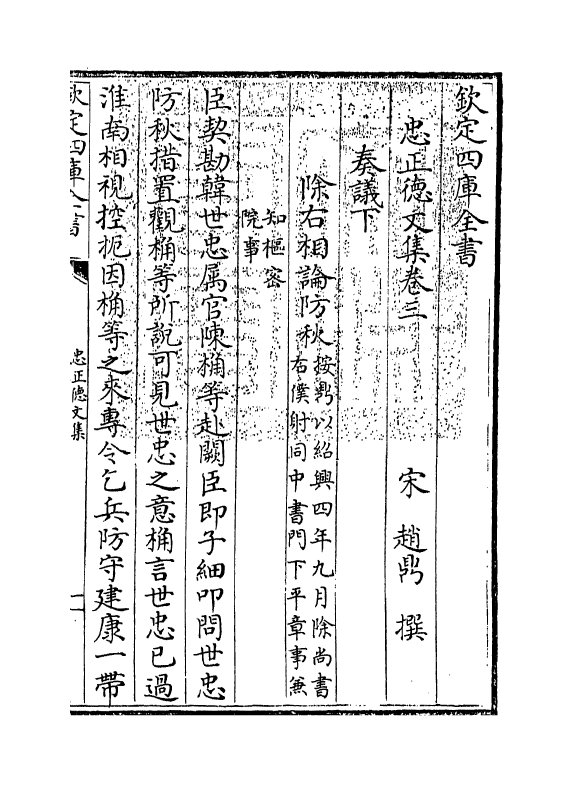 欽定四庫全書
忠正德文集卷三
宋 趙鼎 撰
奏議下
除右相論防秋
按鼎以紹興四年九月除尚書
右僕射同中書門下平章事兼
知樞密
院事
臣契勘韓世忠属官陳桷等赴闕臣即子細叩問世忠
防秋措置觀桷等所說可見世忠之意桷言世忠已過
淮南相視控扼因桷等之來專令乞兵防守建康一帶
欽定四庫全書
忠正德文集
一